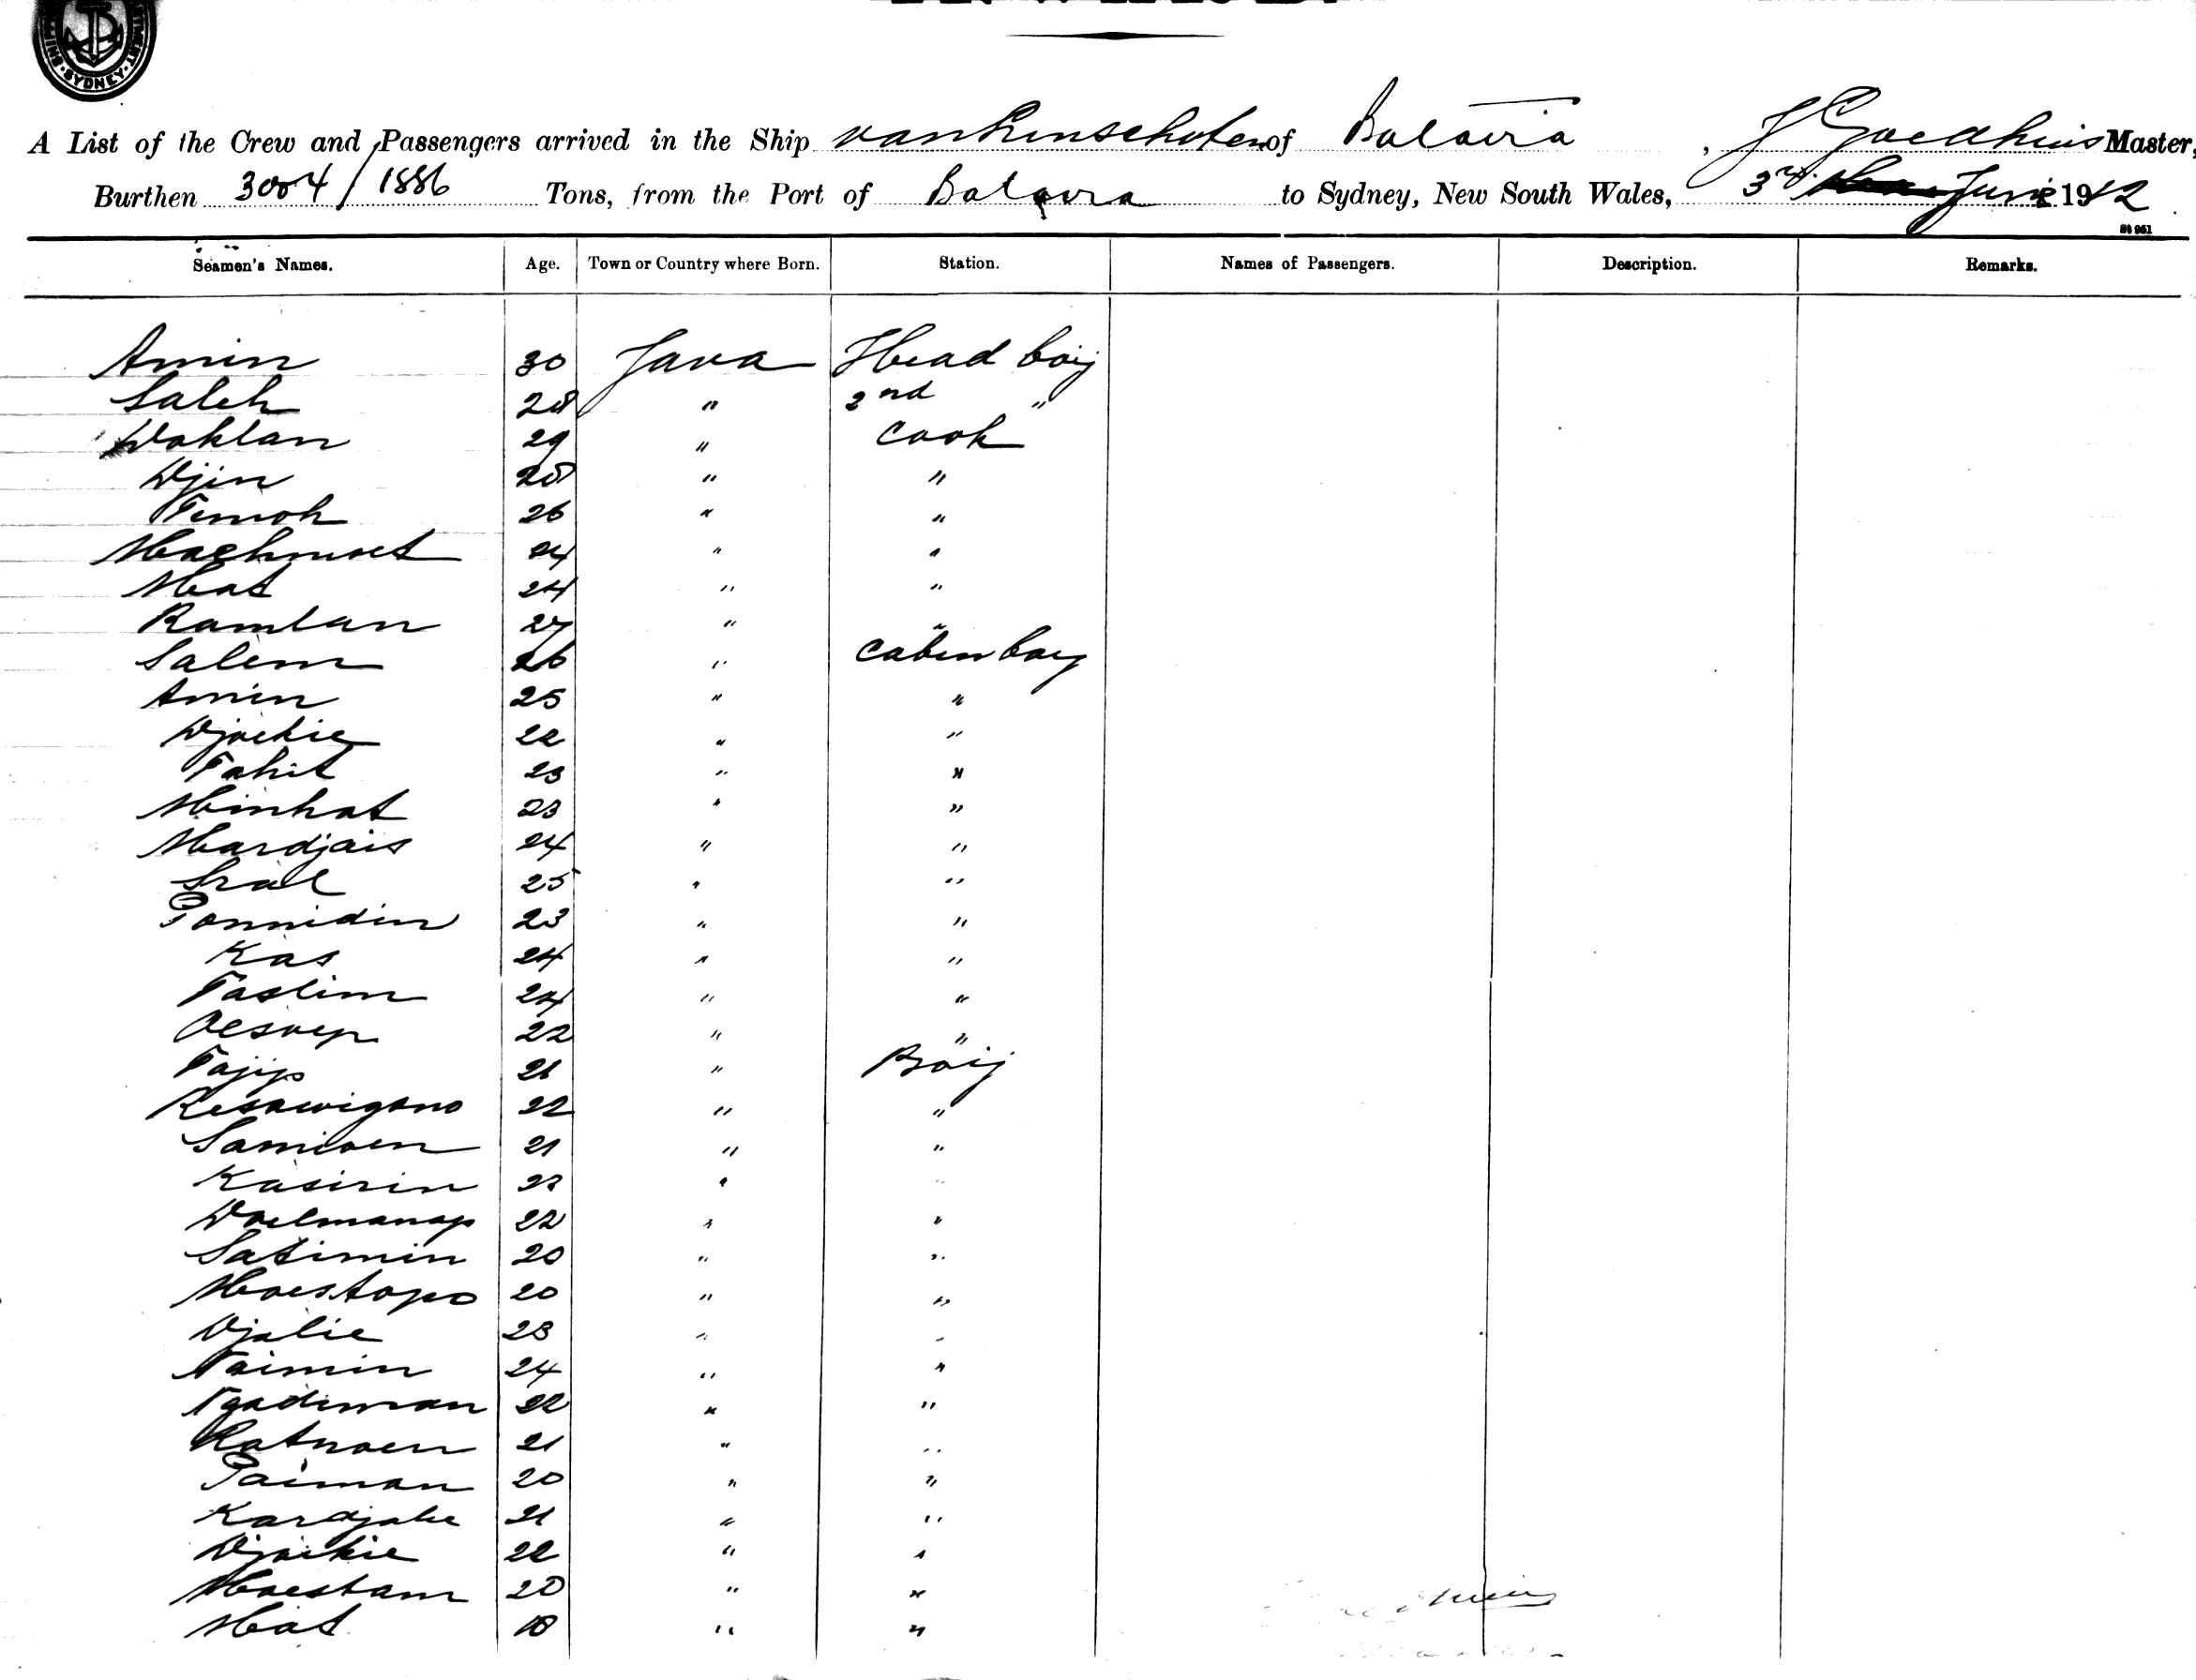 SYDNEY
A List of the Crew and Passengers arrived in the Ship van Linschoten of Batavia, J Goedhuis Master,
Burthen 3004/1886 Tons, from the Port of Batavia to Sydney, New South Wales, 3rd June 1912
St 951
Seamen's Names. Age. Town or Country where Born. Station. Names of Passengers. Description. Remarks.
Amin 30 Java Head boij
Saleh 28 " 2nd "
Doklan 29 " Cook
Djin 28 " "
Temoh 26 " "
Machmoet 24 " "
Mat 24 " "
Ramlan 27 " "
Salem 26 " Cabin boy
Amin 25 " "
Djoekie 22 " "
Tahit 23 " "
Minhat 23 " "
Mardjais 24 " "
Sral 25 " "
Ponnidin 23 " "
Kas 24 " "
Taslim 24 " "
Oesoep 22 " "
Tajip 21 " Boij
Resowigono 22 " "
Samioen 21 " "
Kasirin 22 " "
Doelmanap 22 " "
Satimin 20 " "
Moestopo 20 " "
Djalie 23 " "
Naimin 24 " "
Ngadiman 22 " "
Ratnoen 21 " "
Paiman 20 " "
Kardjalie 21 " "
Djoekie 22 " "
Moestam 20 " "
Mat 18 " "